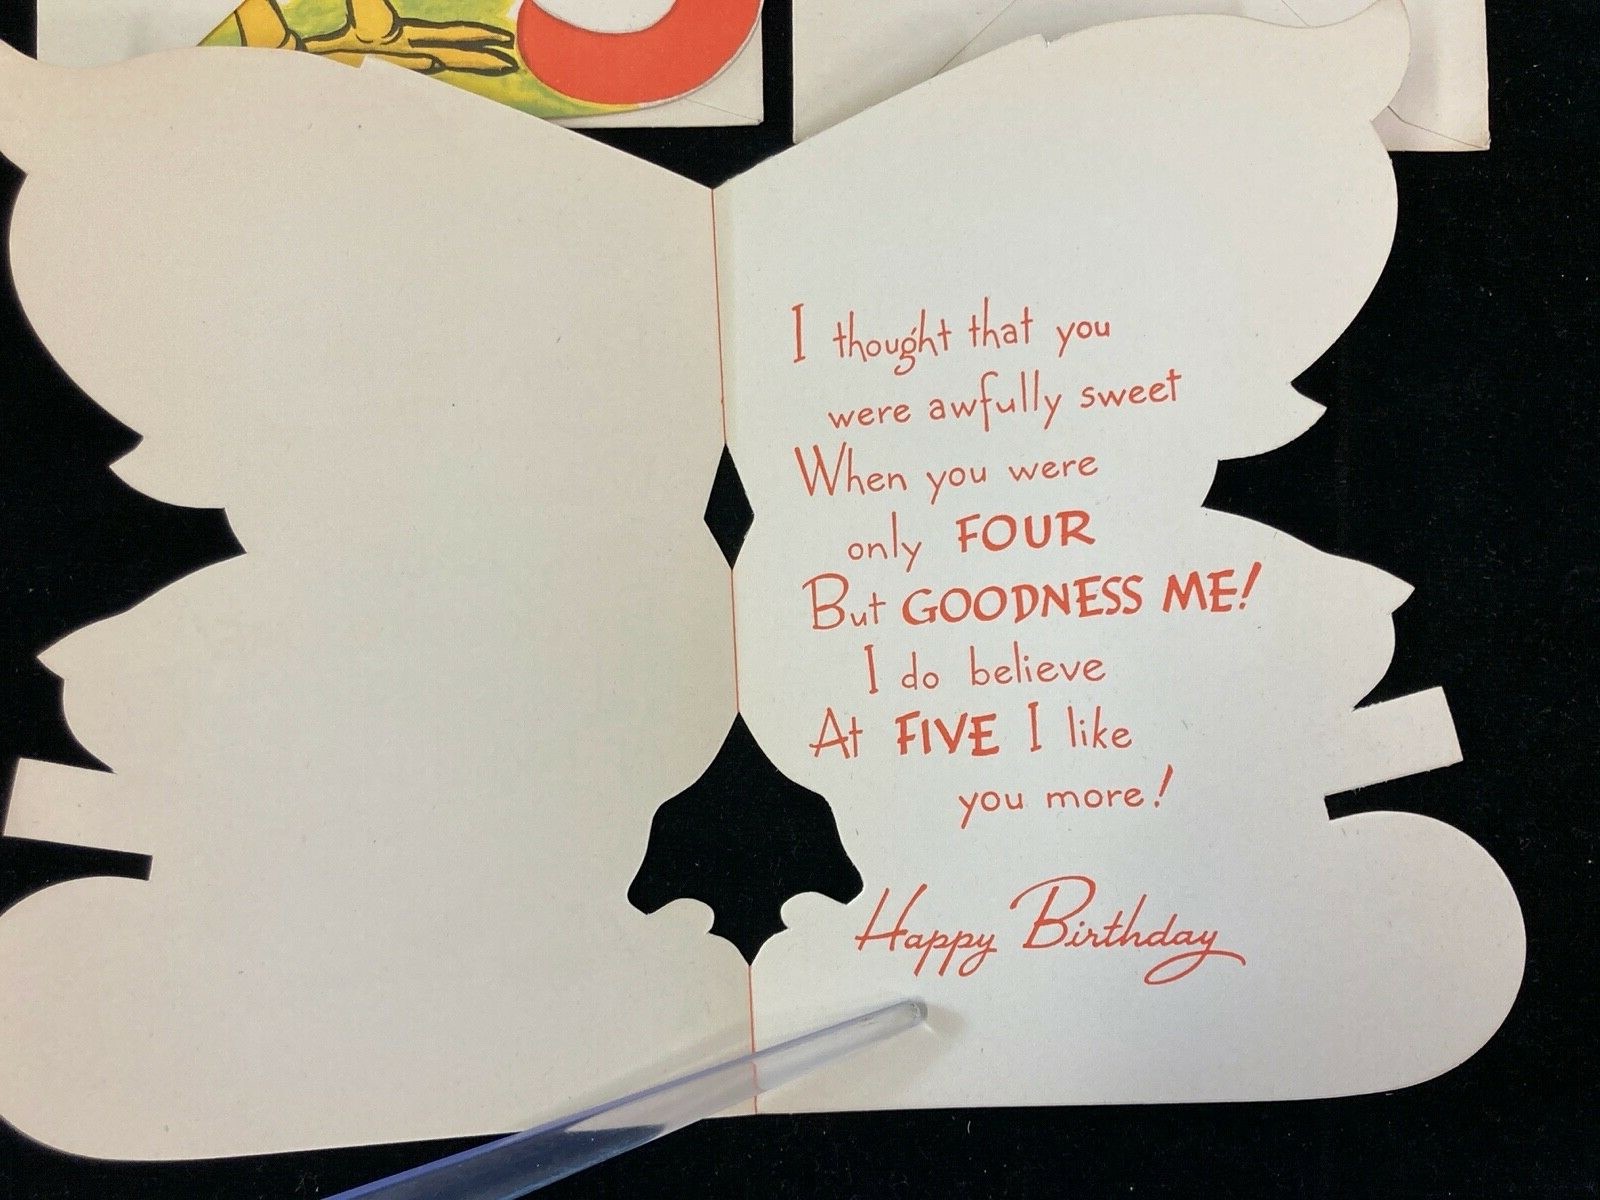 I thought that you
were awfully sweet
When you were
only FOUR
But GOODNESS ME!
I do believe
At FIVE I like
you more!
Happy Birthday